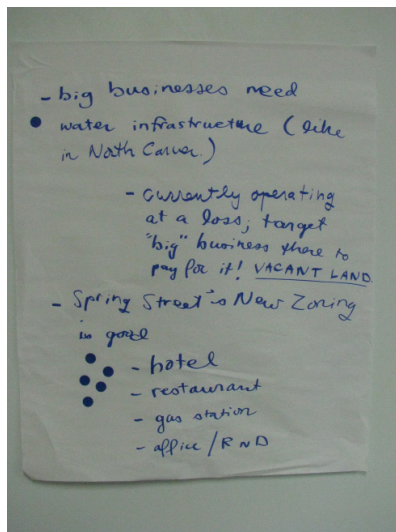 - big businesses need
water infrastructure (like
in North Carver.)
- currently operating
at a loss; target
"big" business there to
pay for it! VACANT LAND
- Spring Street's New Zoning
is good
- hotel
- restaurant
- gas station
- office / RND